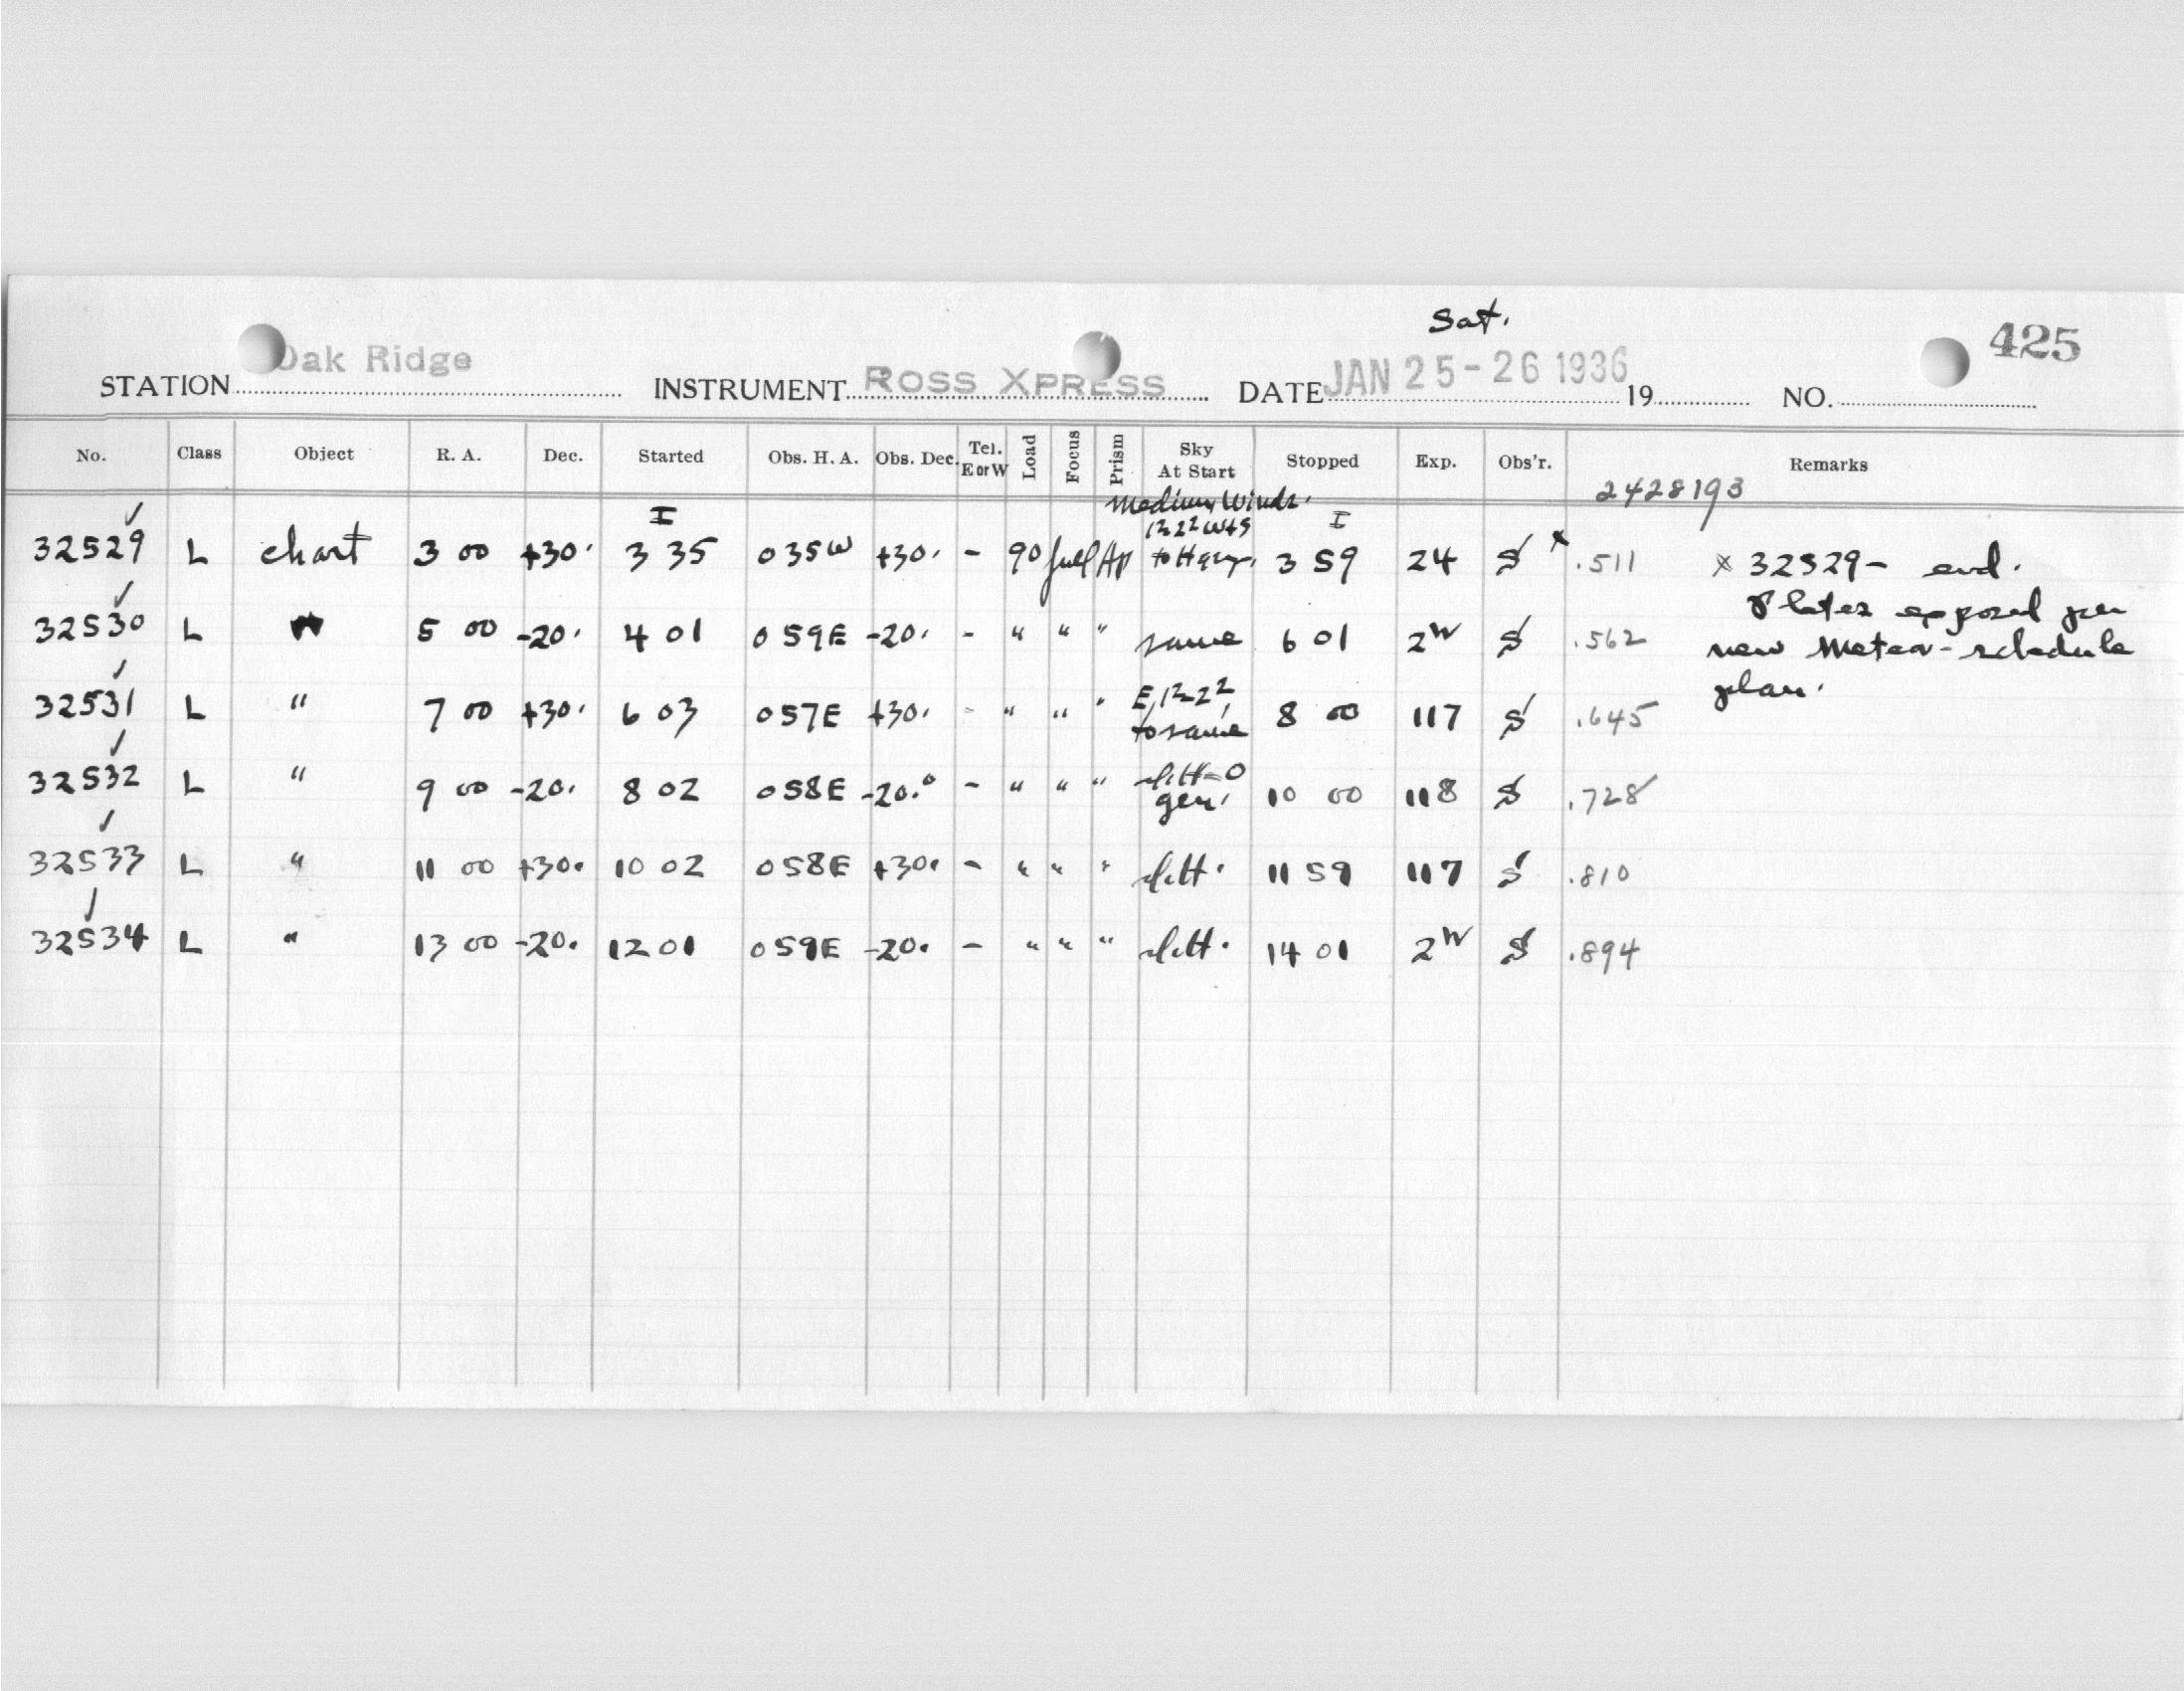 Sat.
425
STATION Oak Ridge INSTRUMENT ROSS XPRESS DATE JAN 25-26 1936 19 NO.
No. Class Object R. A. Dec. Started Obs. H. A. Obs. Dec. Tel. E or W Load Focus Prism Sky At Start Stopped Exp. Obs'r. Remarks
2428193
Medium Winds.
I I
32529 L chart 3 00 +30. 3 35 0 35W +30. - 90 full Ap 3 59 24 S x .511 x 32529- end.
Plates exposed per
32530 L " 5 00 -20. 4 01 0 59E -20. - " " " same 6 01 2W S .562 new Meteor-schedule
plan.
32531 L " 7 00 +30. 6 03 0 57E +30. - " " " E, 12-22, to same 8 00 117 S .645
32532 L " 9 00 -20. 8 02 0 58E -20.0 - " " " ditt=0 gen. 10 00 118 S .728
32533 L " 11 00 +30. 10 02 0 58E +30. - " " " ditt. 11 59 117 S .810
32534 L " 13 00 -20. 12 01 0 59E -20. - " " " ditt. 14 01 2W S .894